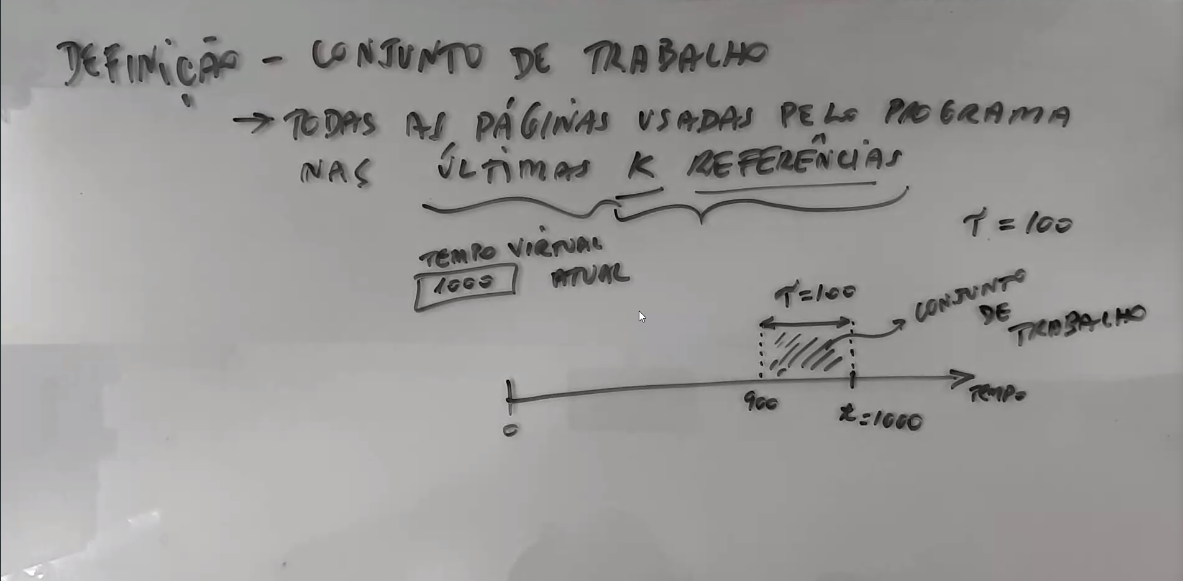 DEFINIÇÃO - CONJUNTO DE TRABALHO
→ TODAS AS PÁGINAS USADAS PELO PROGRAMA
NAS ÚLTIMAS K REFERÊNCIAS
T = 100
TEMPO VIRTUAL
1000 ATUAL
T=100
CONJUNTO
DE
TRABALHO
0
900
t=1000
TEMPO